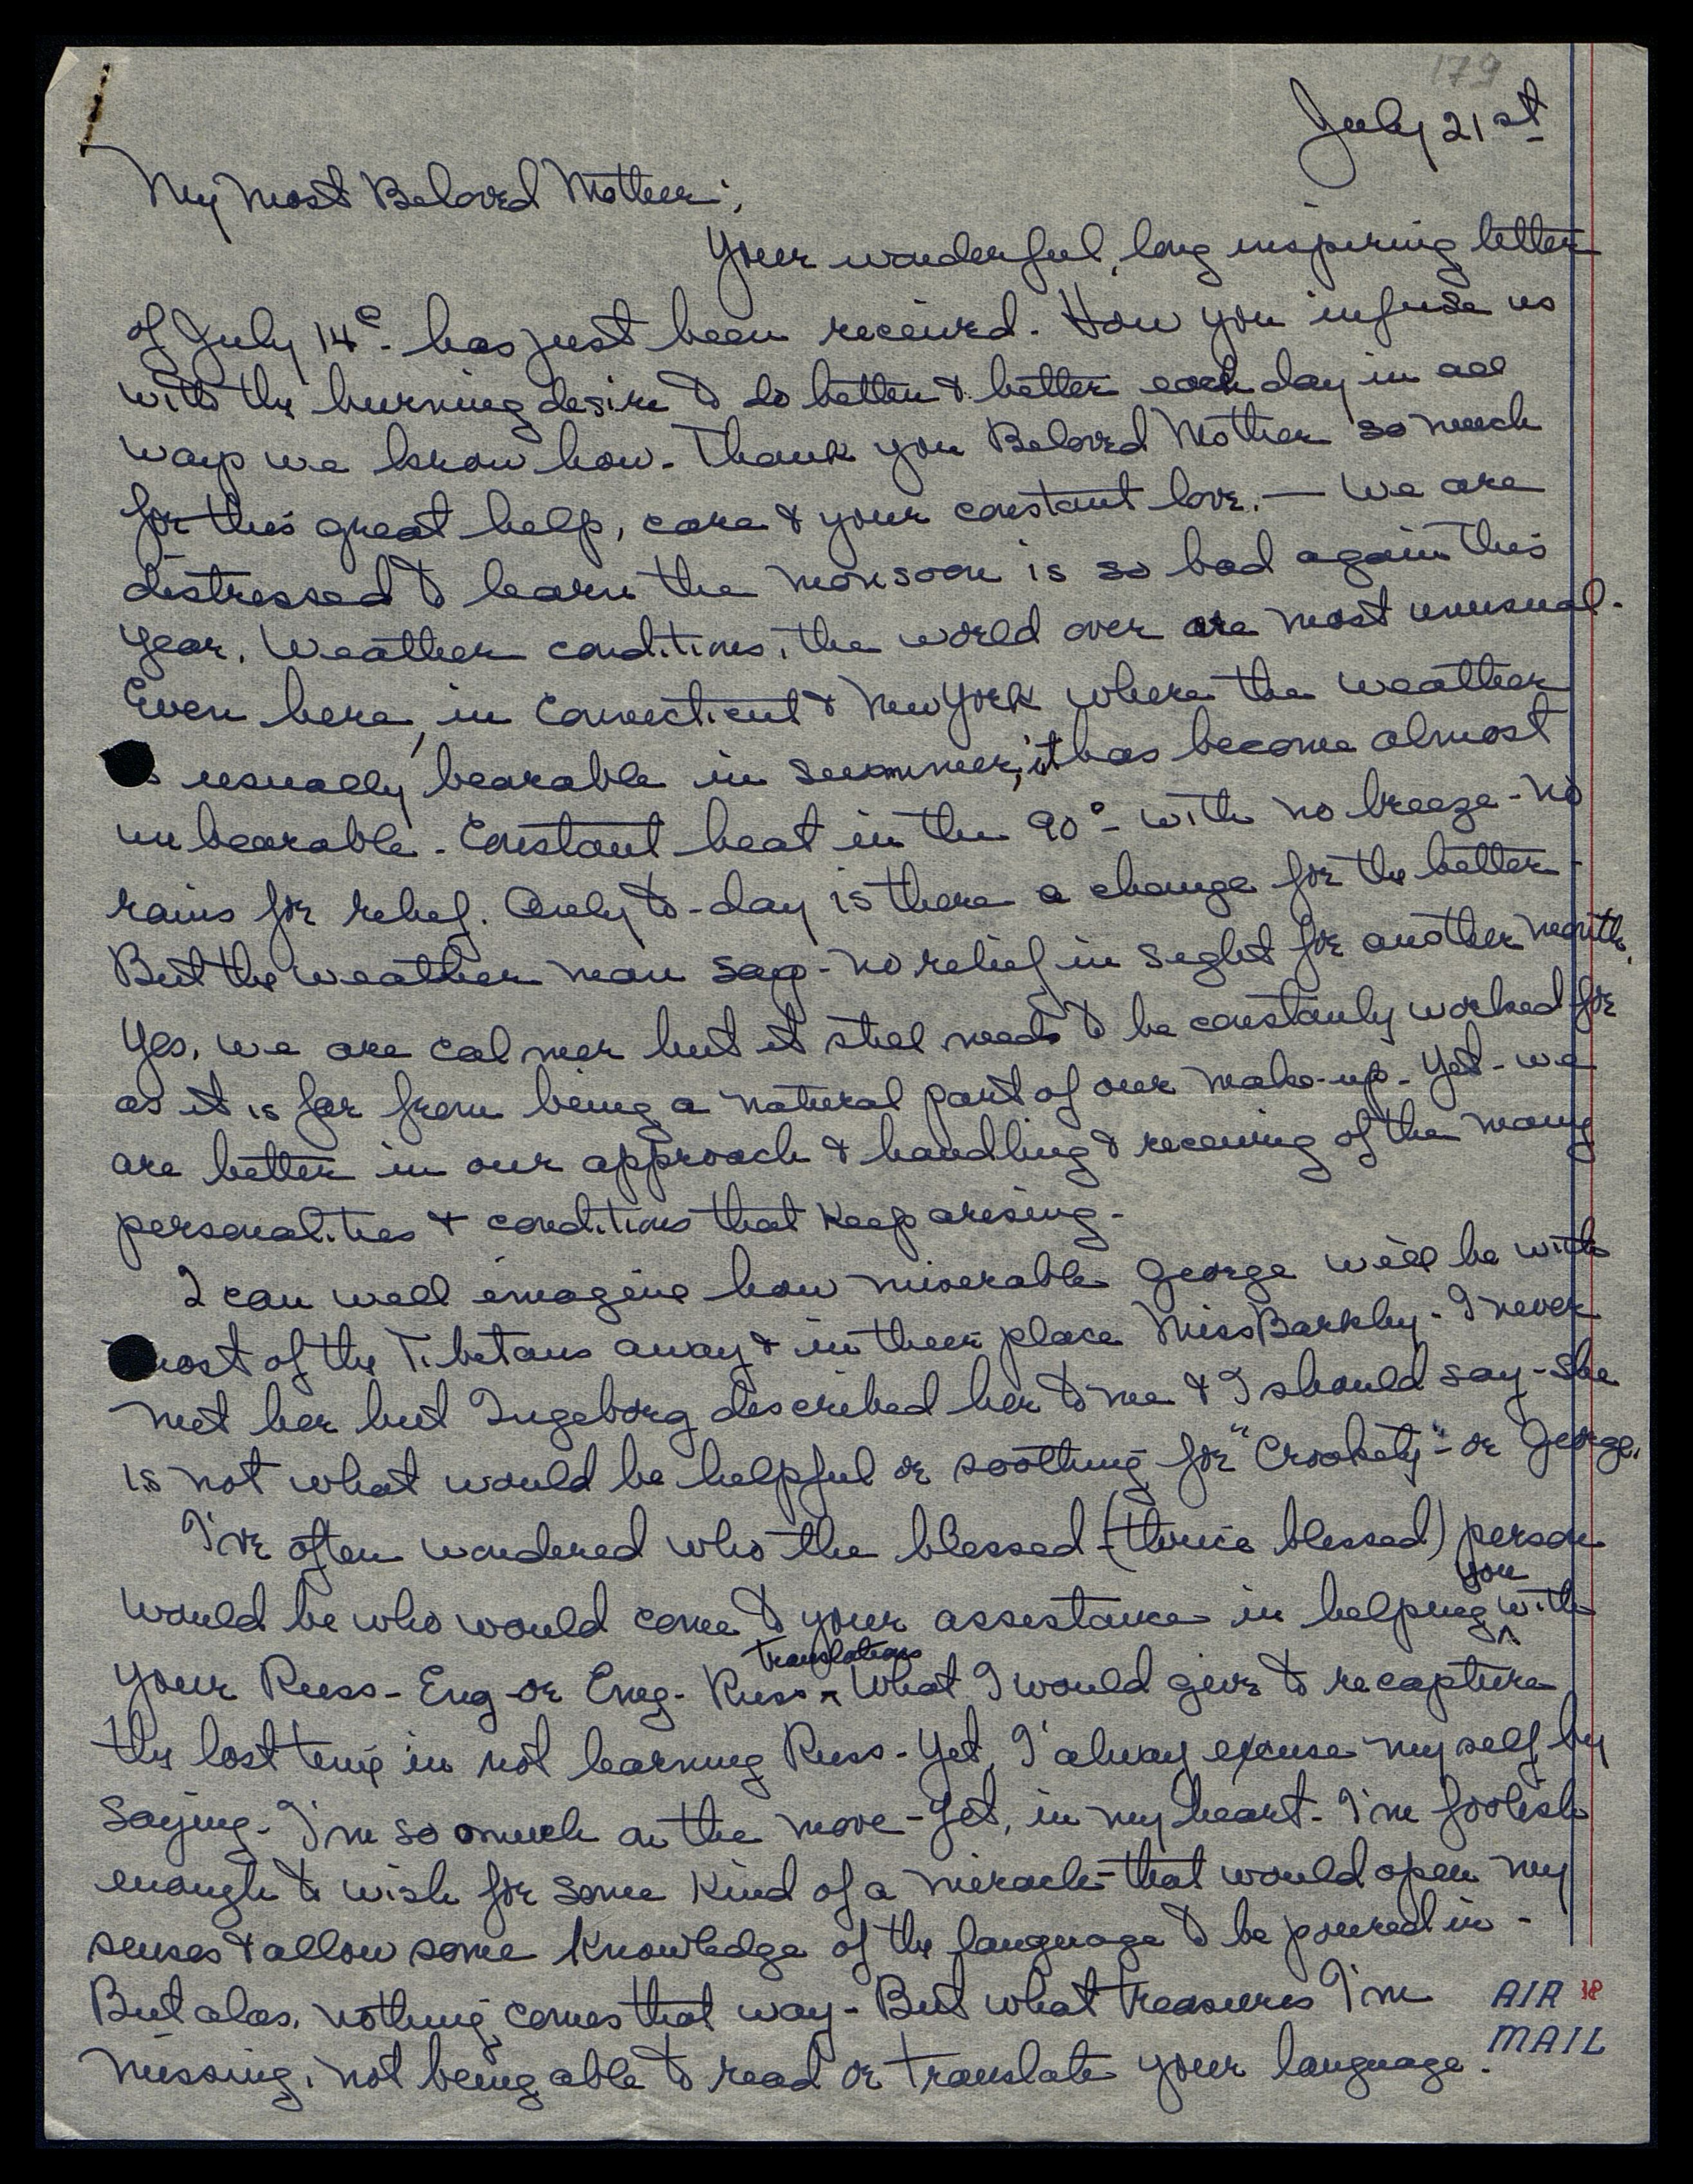 179
July 21st
My Most Beloved Mother;
Your wonderful, long inspiring letter
of July 14e - has just been received. How you infuse us
with the burning desire to do better & better each day in all
ways we know how. Thank you Beloved Mother so much
for this great help, care & your constant love. — We are
distressed to learn the monsoon is so bad again this
year. Weather conditions, the world over are most unusual.
Even here, in Connecticut & New York where the weather
is usually bearable in summer, it has become almost
unbearable. Constant heat in the 90° - with no breeze - no
rains for relief. Only to-day is there a change for the better -
But the weather man says - no relief in sight for another month.
Yes, we are calmer but it still needs to be constantly worked for
as it is far from being a natural part of our make-up. Yet - we
are better in our approach & handling & receiving of the many
personalities & conditions that keep arising -
I can well imagine how miserable George will be with
most of the Tibetans away & in their place Miss Barkley - I never
met her but Ingeborg described her to me & I should say - she
is not what would be helpful or soothing for "Crookety" - or George.
I've often wondered who the blessed - (thrice blessed) person
would be who would come to your assistance in helping you with
your Russ - Eng - or Eng - Russ translations. What I would give to recapture
the lost time in not learning Russ - Yet, I alway excuse myself by
saying - I'm so much on the move - Yet, in my heart - I'm foolish
enough to wish for some kind of a miracle - that would open my
senses & allow some knowledge of the language to be poured in -
But alas, nothing comes that way - But what treasures I'm
missing, not being able to read or translate your language.
AIR
MAIL